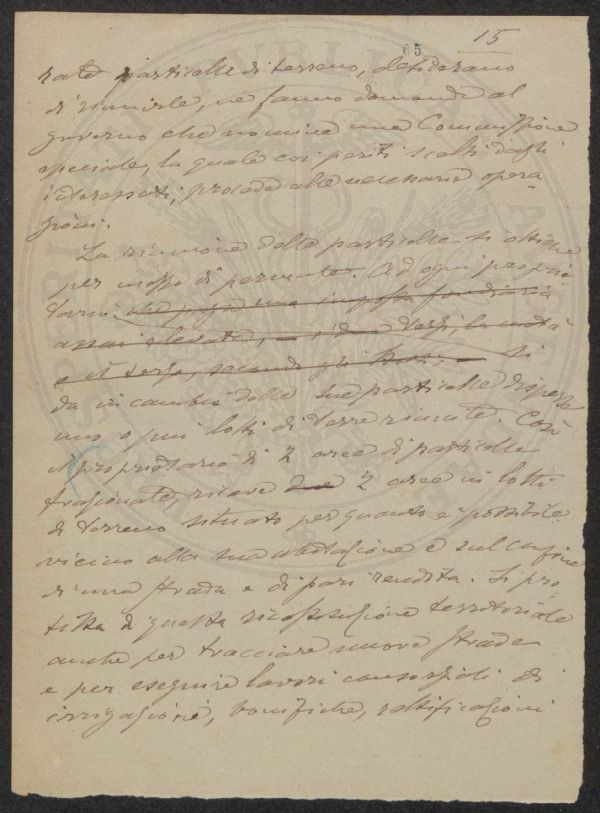 65 15
rate particelle di terreno, desiderano
di riunirle, ne fanno domanda al
governo che nomina una Commissione
speciale, la quale coi periti scelti dagli
interessati, procede alle necessarie opera
zioni.
La riunione delle particelle si ottiene
per mezzo di permute. Ad ogni proprie
tario che paga una imposta fondiaria
assai elevata, — i due terzi, la metà
e il terzo, secondo gli — si
dà in cambio delle sue particelle disperse
uno o più lotti di terre riunite. Così
il proprietario di 2 aree di particelle
frazionate, riceve due 2 aree in lotti
di terreno situato per quanto è possibile
vicino alla sua abitazione e sul confine
di una strada e di pari rendita. Si pro
fitta di questa ricomposizione territoriale
anche per tracciare nuove strade
e per eseguire lavori consorziali di
irrigazione, bonifiche, rettificazioni